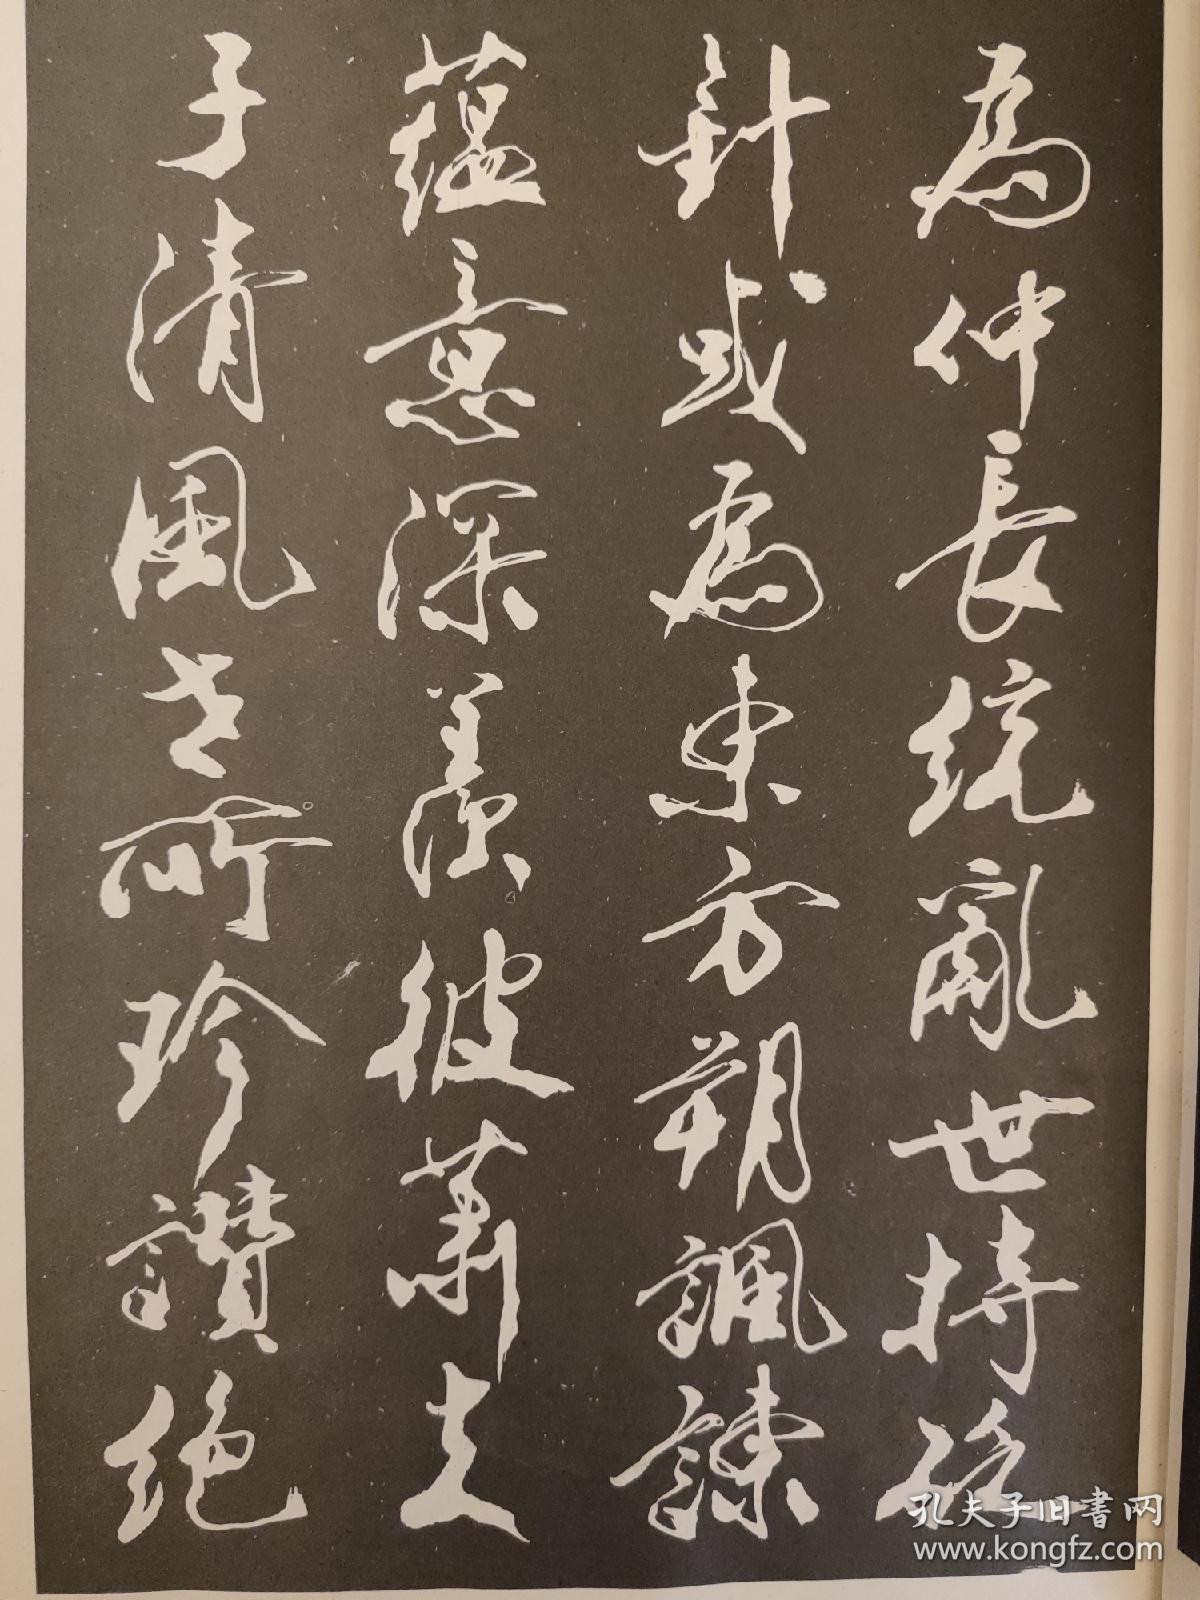 為仲長統亂世持砭
針或為東方朔諷諫
蘊意深羨彼蕭夫
子清風所珍讚絕
孔夫子旧書网
www.kongfz.com